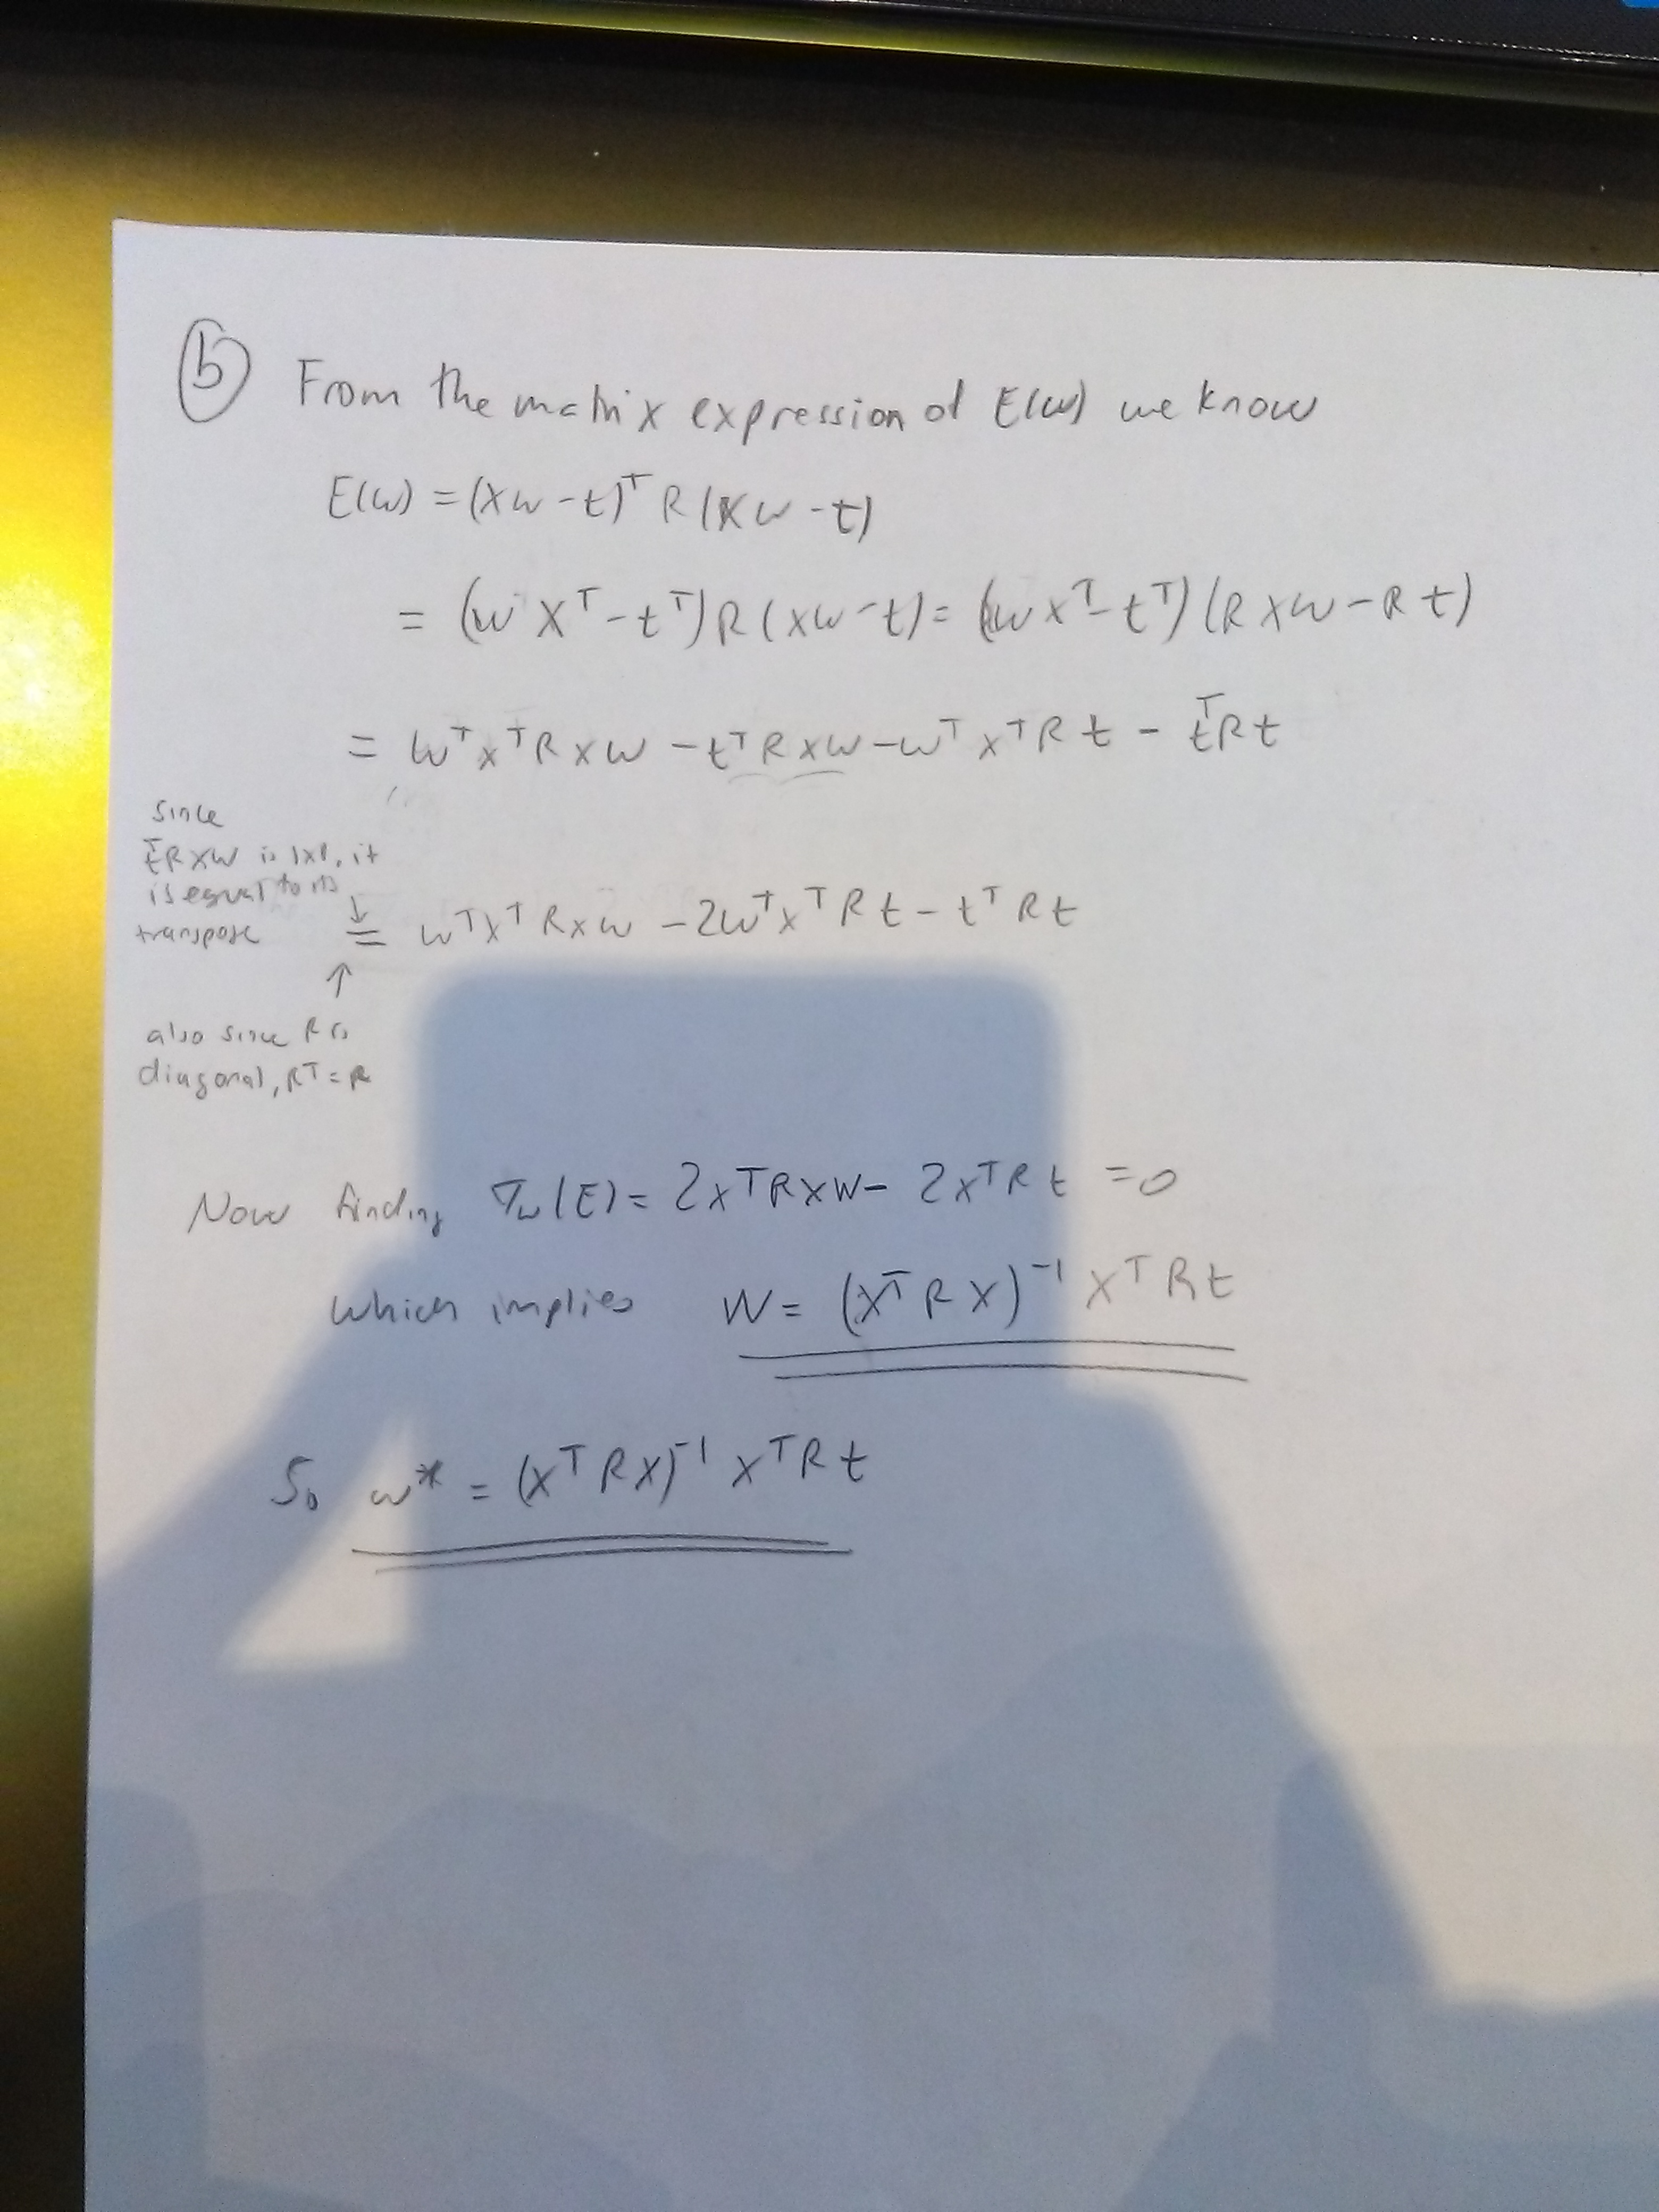 (b) From the matrix expression of E(w) we know
E(w) = (Xw - t)ᵀ R (Xw - t)
= (w Xᵀ - tᵀ) R (Xw - t) = (w Xᵀ - tᵀ) (R X w - R t)
= wᵀ Xᵀ R X w - tᵀ R X w - wᵀ Xᵀ R t - tᵀ R t
since
tᵀ R X w is 1x1, it
is equal to its
transpose
↓
= wᵀ Xᵀ R X w - 2wᵀ Xᵀ R t - tᵀ R t
↑
also since R is
diagonal, Rᵀ = R
Now finding ∇w(E) = 2XᵀRXw - 2XᵀRt = 0
which implies w = (Xᵀ R X)⁻¹ Xᵀ R t
So w* = (Xᵀ R X)⁻¹ Xᵀ R t